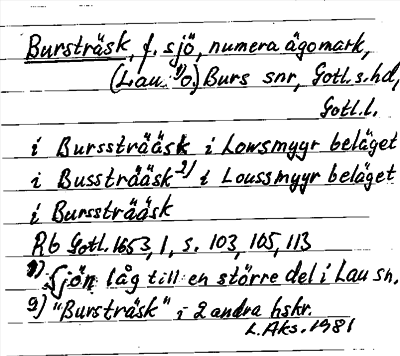 Bursträsk, f. sjö, numera ägomark,
(Lau. 1) o.) Burs snr, Gotl. s. hd,
Gotl. l.
i Burssträäsk i Lowsmyyr beläget
i Bussträäsk 2) i Loussmyyr beläget
i Burssträäsk
Rb Gotl. 1653, 1, s. 103, 105, 113
1) Sjön låg till en större del i Lau sn.
2) "Bursträsk" i 2 andra hskr.
L. Aks. 1981